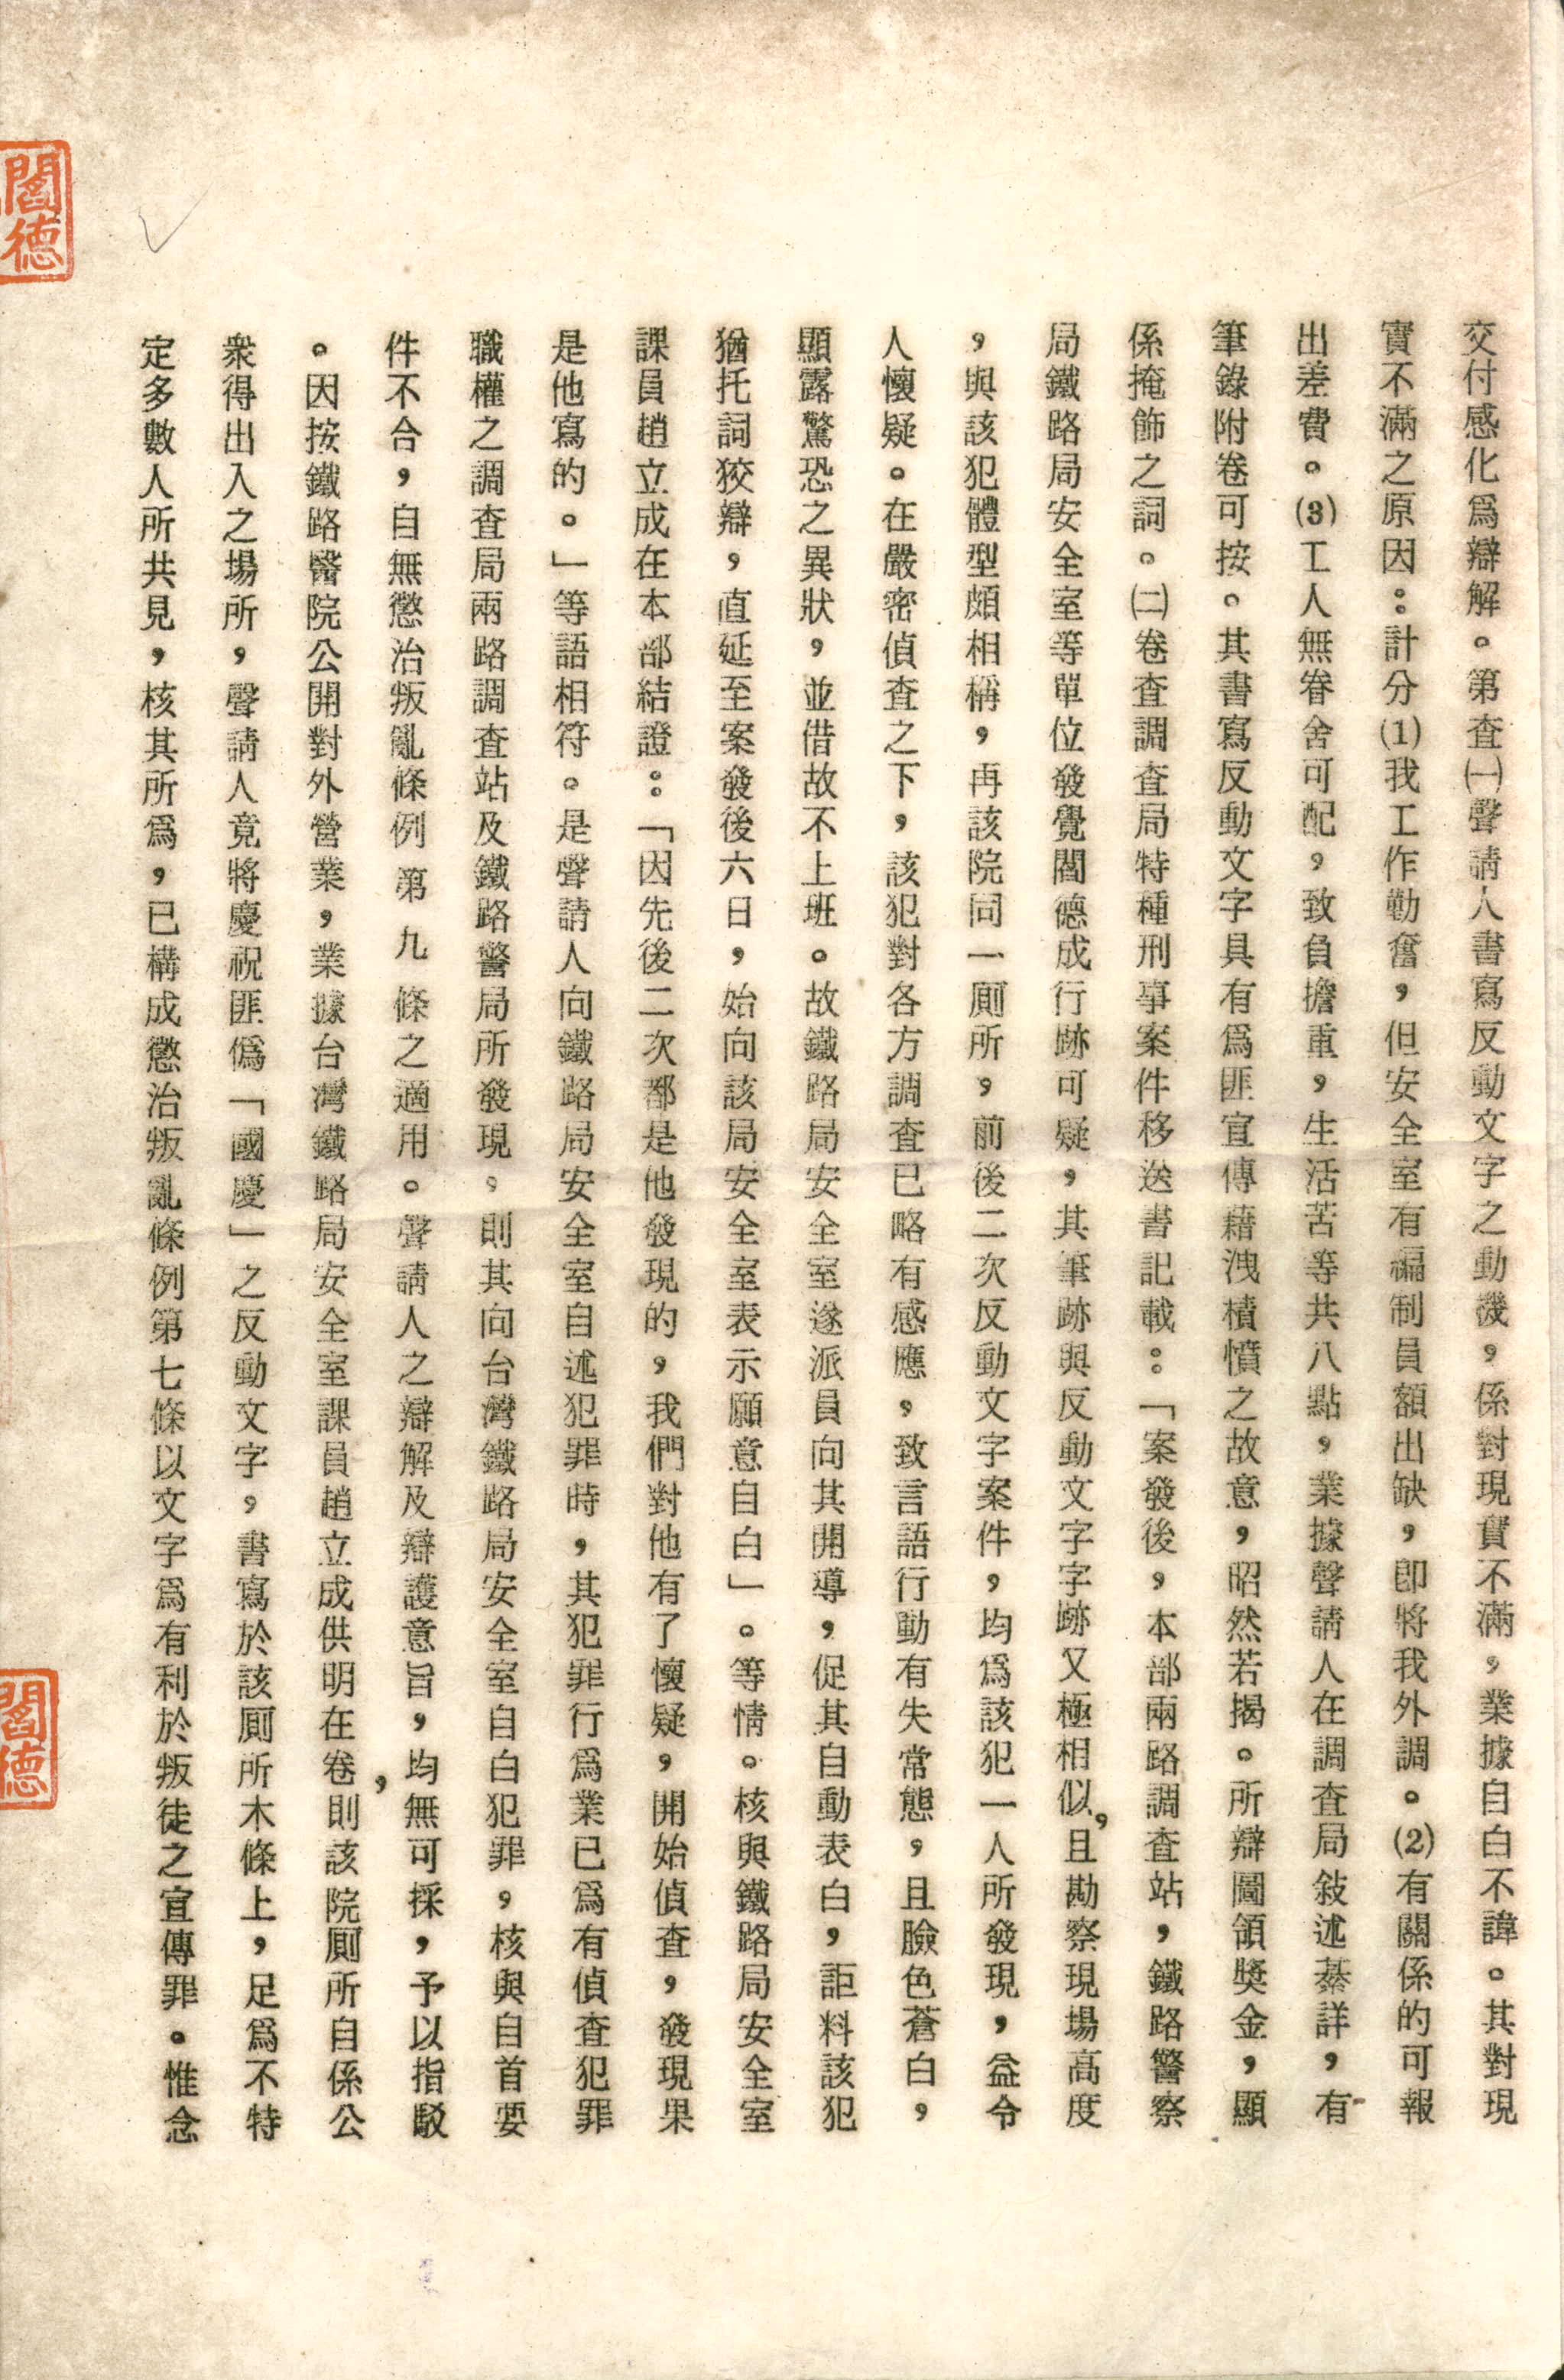 交付感化爲辯解。第查㈠聲請人書寫反動文字之動機，係對現實不滿，業據自白不諱。其對現
實不滿之原因：計分(1)我工作勤奮，但安全室有編制員額出缺，卽將我外調。(2)有關係的可報
出差費。(3)工人無眷舍可配，致負擔重，生活苦等共八點，業據聲請人在調查局敍述綦詳，有
筆錄附卷可按。其書寫反動文字具有爲匪宣傳藉洩積憤之故意，昭然若揭。所辯圖領獎金，顯
係掩飾之詞。㈡卷查調查局特種刑事案件移送書記載：「案發後，本部兩路調查站，鐵路警察
局鐵路局安全室等單位發覺閻德成行跡可疑，其筆跡與反動文字字跡又極相似，且勘察現場高度
，與該犯體型頗相稱，再該院同一厠所，前後二次反動文字案件，均爲該犯一人所發現，益令
人懷疑。在嚴密偵查之下，該犯對各方調查已略有感應，致言語行動有失常態，且臉色蒼白，
顯露驚恐之異狀，並借故不上班。故鐵路局安全室遂派員向其開導，促其自動表白，詎料該犯
猶托詞狡辯，直延至案發後六日，始向該局安全室表示願意自白」。等情。核與鐵路局安全室
課員趙立成在本部結證：「因先後二次都是他發現的，我們對他有了懷疑，開始偵查，發現果
是他寫的。」等語相符。是聲請人向鐵路局安全室自述犯罪時，其犯罪行爲業已爲有偵查犯罪
職權之調查局兩路調查站及鐵路警局所發現，則其向台灣鐵路局安全室自白犯罪，核與自首要
件不合，自無懲治叛亂條例第九條之適用。聲請人之辯解及辯護意旨，均無可採，予以指駁
。因按鐵路醫院公開對外營業，業據台灣鐵路局安全室課員趙立成供明在卷，則該院厠所自係公
衆得出入之場所，聲請人竟將慶祝匪僞「國慶」之反動文字，書寫於該厠所木條上，足爲不特
定多數人所共見，核其所爲，已構成懲治叛亂條例第七條以文字爲有利於叛徒之宣傳罪。惟念
閻德
閻德